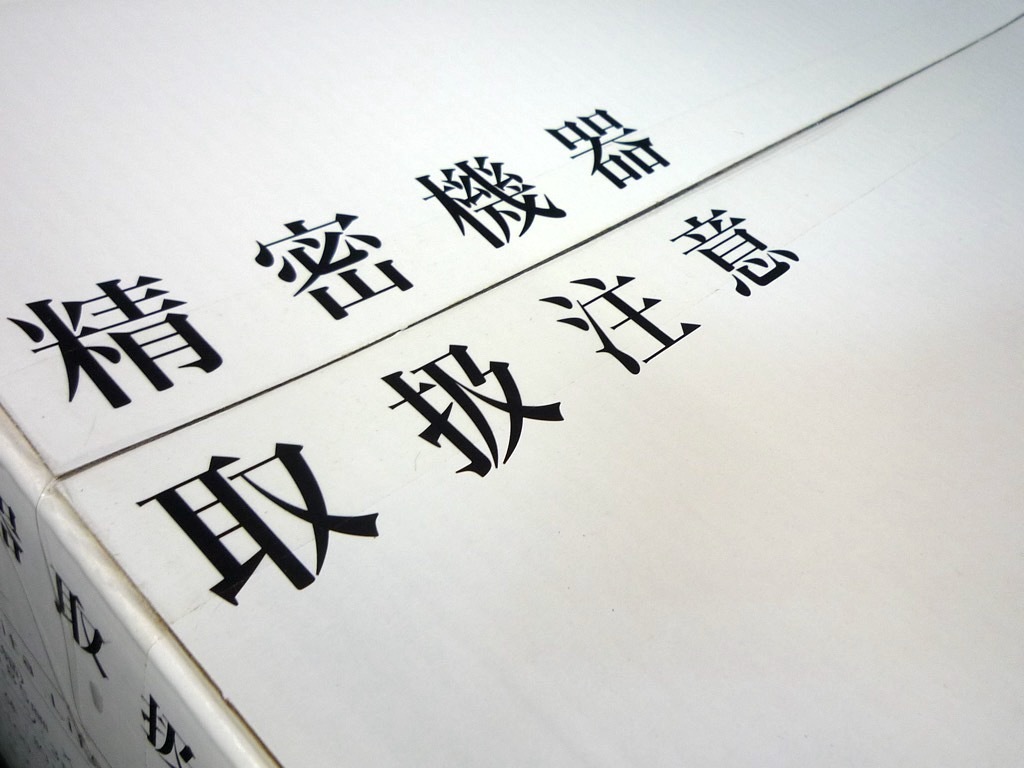 精密機器
取扱注意
器
取扱